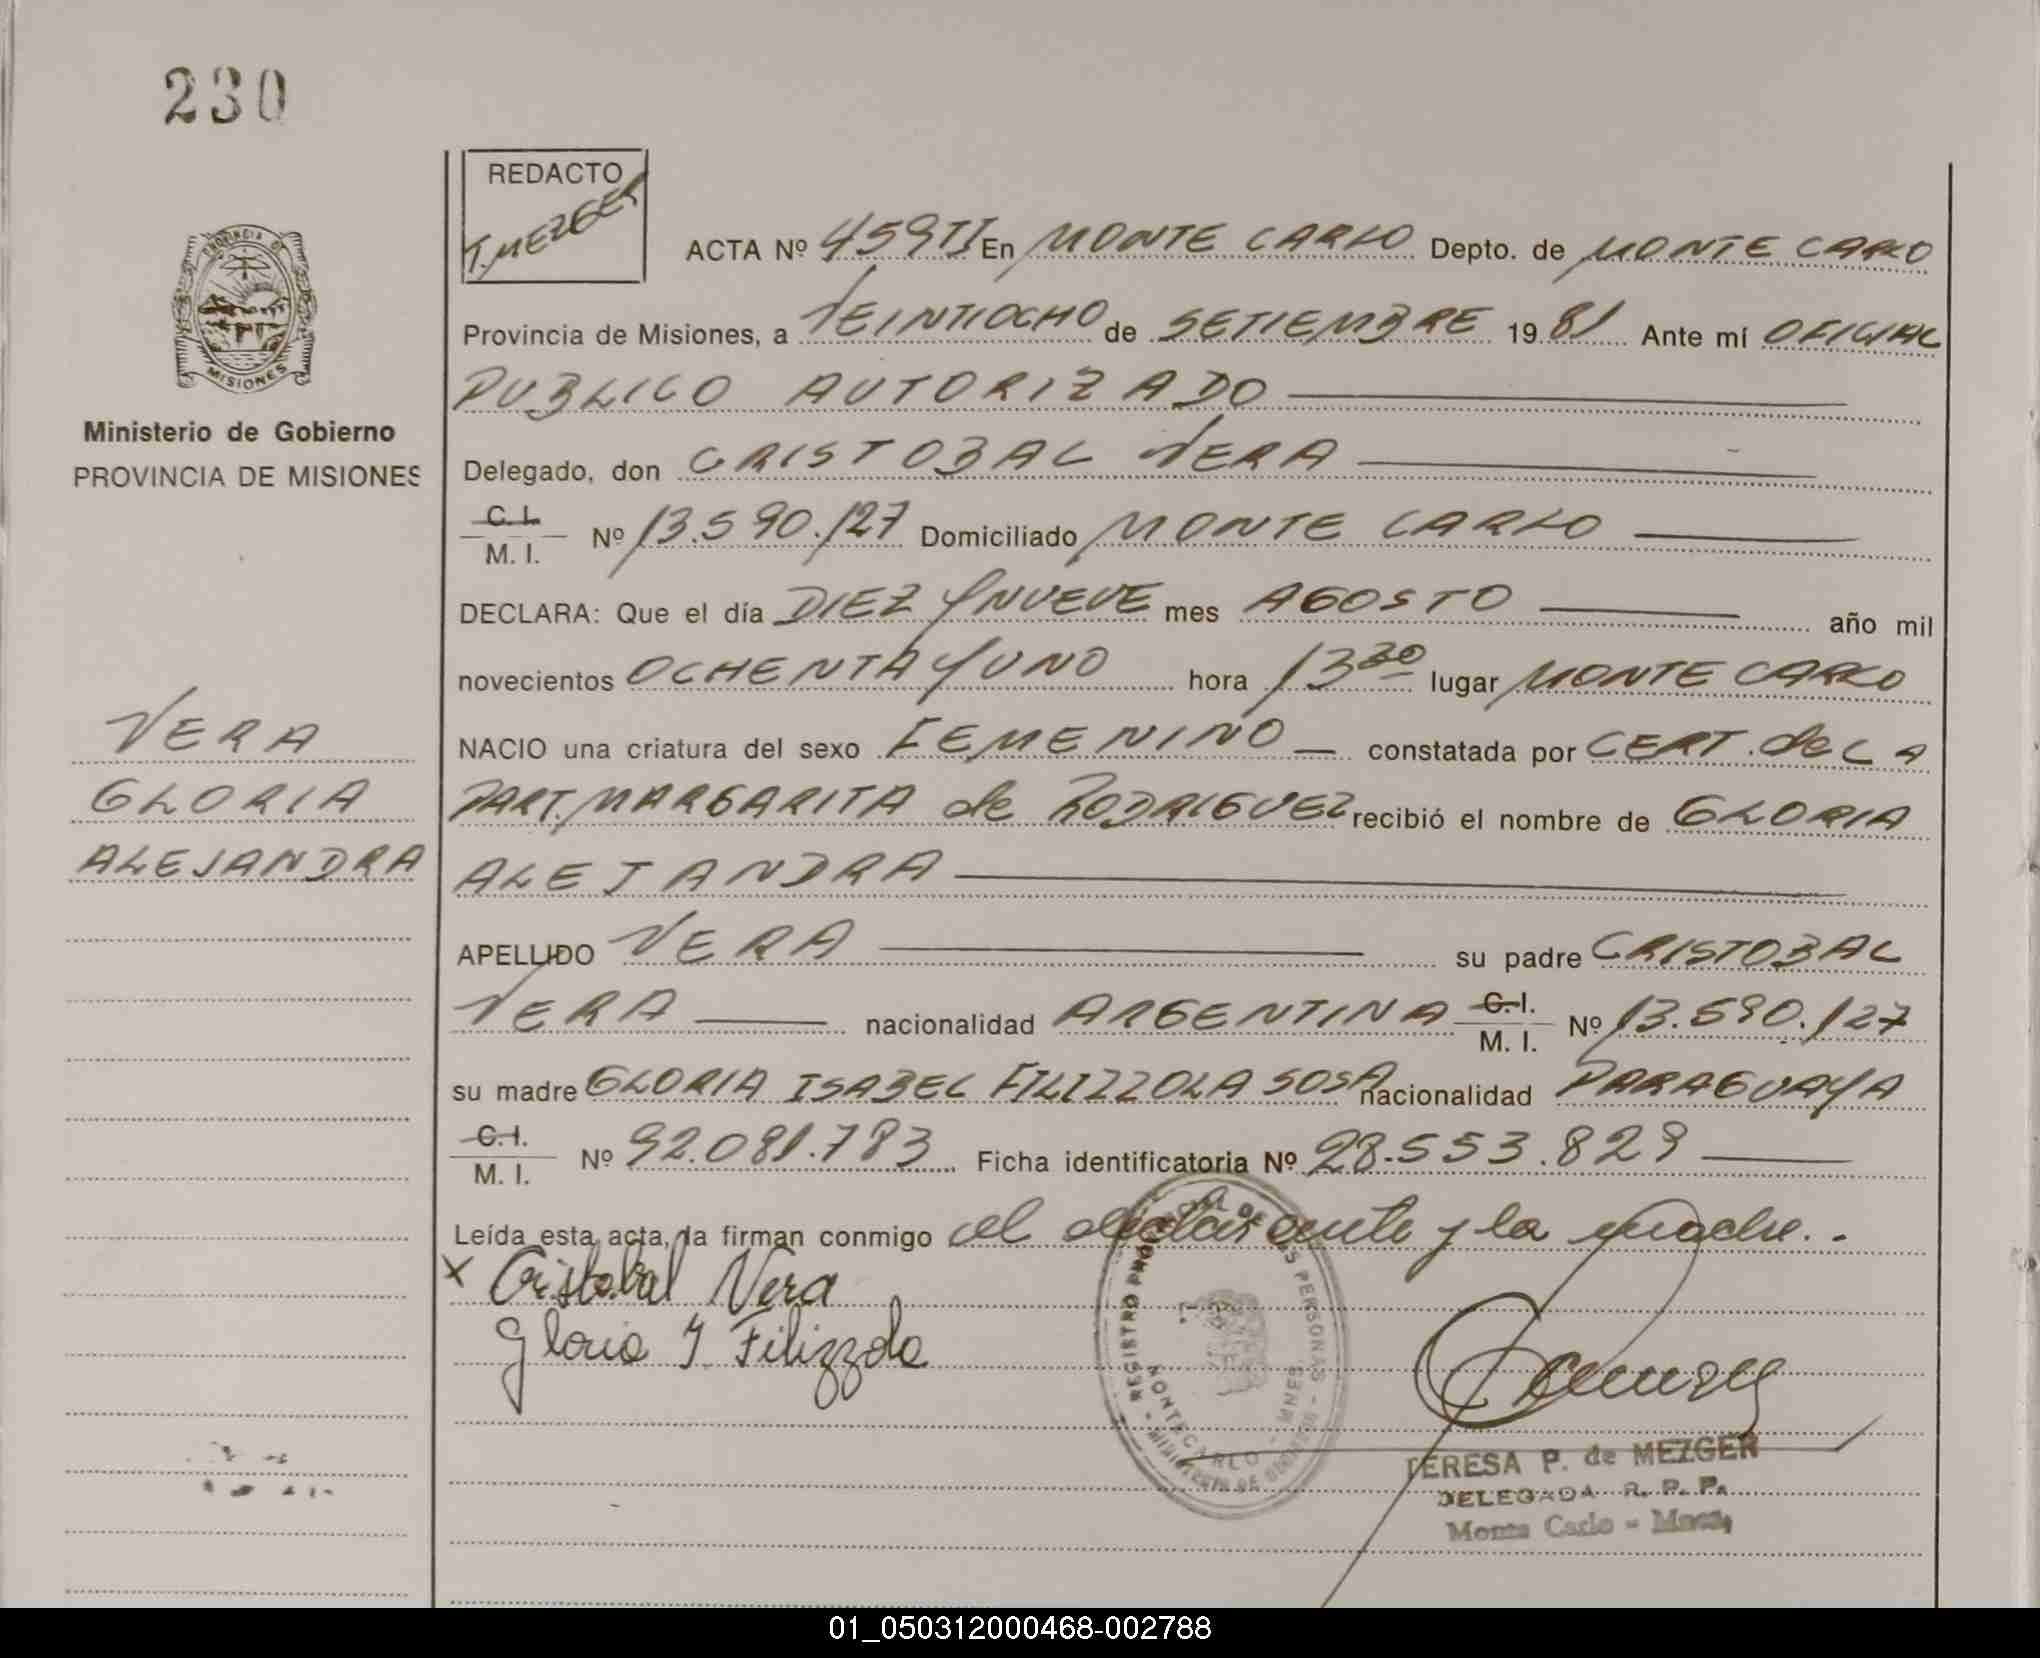 230
REDACTO
T. MEZGER
PROVINCIA DE
MISIONES
Ministerio de Gobierno
PROVINCIA DE MISIONES
VERA
GLORIA
ALEJANDRA
ACTA Nº 459TI En MONTE CARLO Depto. de MONTE CARLO
Provincia de Misiones, a VEINTIOCHO de SETIEMBRE 1981 Ante mí OFICIAL
PUBLICO AUTORIZADO
Delegado, don CRISTOBAL VERA
C. I.
M. I. Nº 13.590.127 Domiciliado MONTE CARLO
DECLARA: Que el día DIEZ Y NUEVE mes AGOSTO año mil
novecientos OCHENTA Y UNO hora 13 30 lugar MONTE CARLO
NACIO una criatura del sexo FEMENINO constatada por CERT. de LA
PART. MARGARITA de RODRIGUEZ recibió el nombre de GLORIA
ALEJANDRA
APELLIDO VERA su padre CRISTOBAL
VERA nacionalidad ARGENTINA C. I. M. I. Nº 13.590.127
su madre GLORIA ISABEL FILIZZOLA SOSA nacionalidad PARAGUAYA
C. I.
M. I. Nº 92.081.783 Ficha identificatoria Nº 28.553.829
Leída esta acta, la firman conmigo el declarante y la madre..
x Cristobal Vera
Gloria I. Filizzola
REGISTRO PROVINCIAL DE LAS PERSONAS - MINISTERIO DE GOBIERNO -
MONTECARLO - MNES.
TERESA P. de MEZGER
DELEGADA R. P. P.
Monte Carlo - Mnes.
01_050312000468-002788